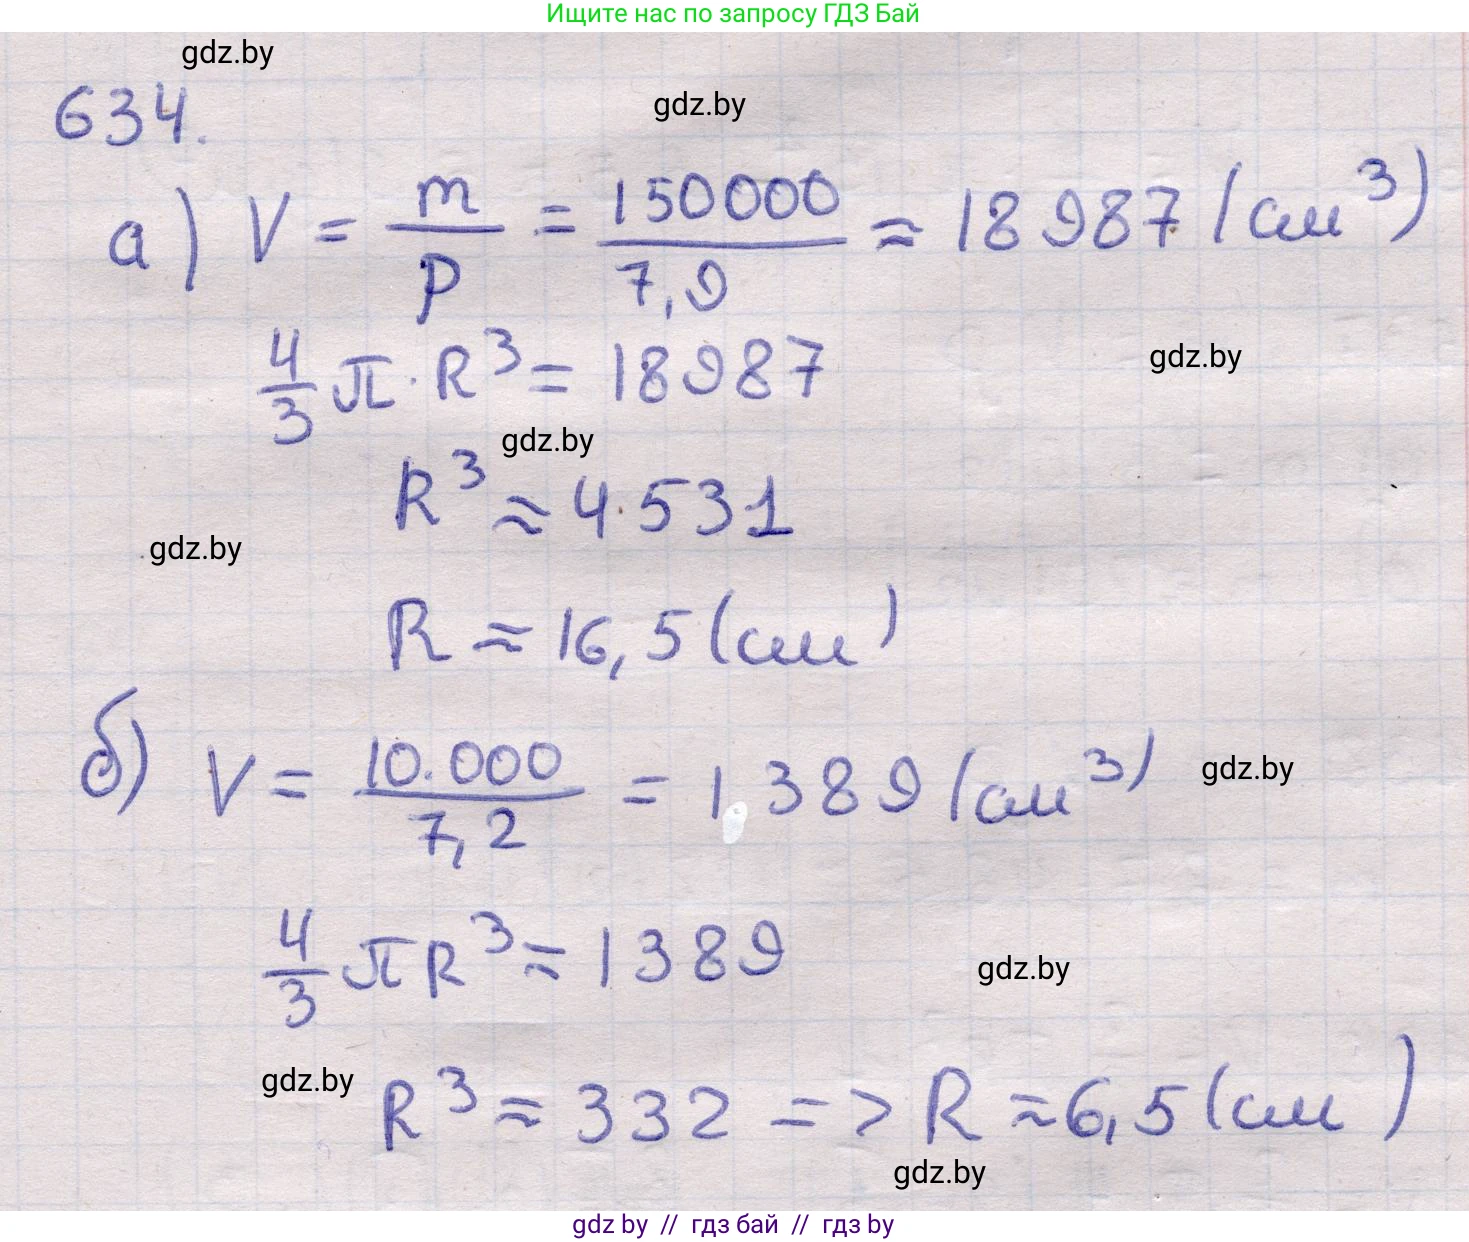 Ищите нас по запросу ГДЗ Бай
gdz.by
634.
gdz.by
а) V = m/ρ = 150000/7,9 ≈ 18987 (см³)
4/3 π · R³ = 18987
gdz.by
gdz.by
R³ ≈ 4531
gdz.by
R ≈ 16,5 (см)
б) V = 10.000/7,2 = 1389 (см³)
gdz.by
4/3 π R³ ≈ 1389
gdz.by
gdz.by
R³ ≈ 332 => R ≈ 6,5 (см)
gdz.by
gdz by // гдз бай // гдз by